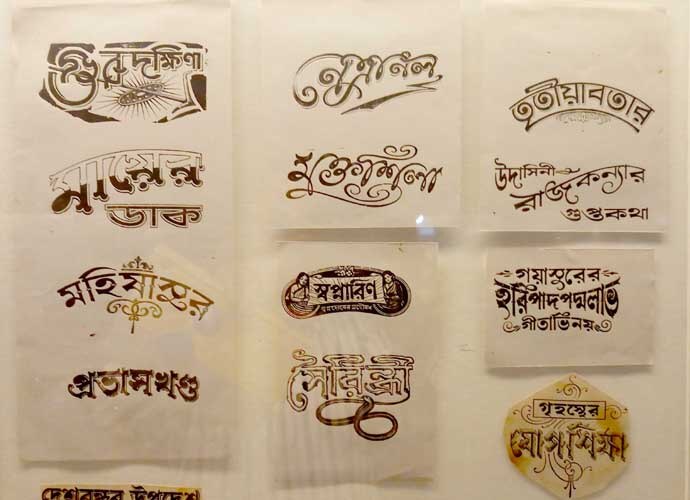 গুরুদক্ষিণা
মায়ের
ডাক
মহিষাসুর
প্রভাসখণ্ড
দেশবন্ধুর উপদেশ
প্রেমানল
মুক্তাশীলা
স্বপ্নারিণ
সৈরিন্ধ্রী
তৃতীয়াবতার
উদাসিনী
রাজকন্যার
গুপ্তকথা
গয়াসুরের
হরিপাদপদ্মলাভ
গীতাভিনয়
গৃহস্থের
যোগশিক্ষা